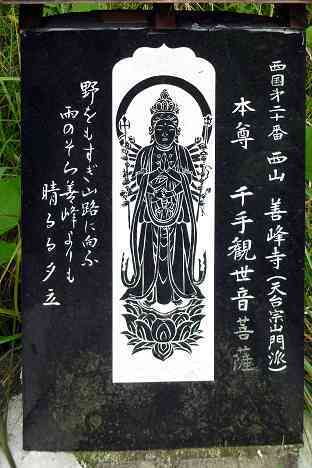 西国第二十番 西山 善峰寺(天台宗山門派)
本尊 千手觀世音菩薩
野をもすぎ山路に向ふ
雨のそら善峰よりも
晴るる夕立